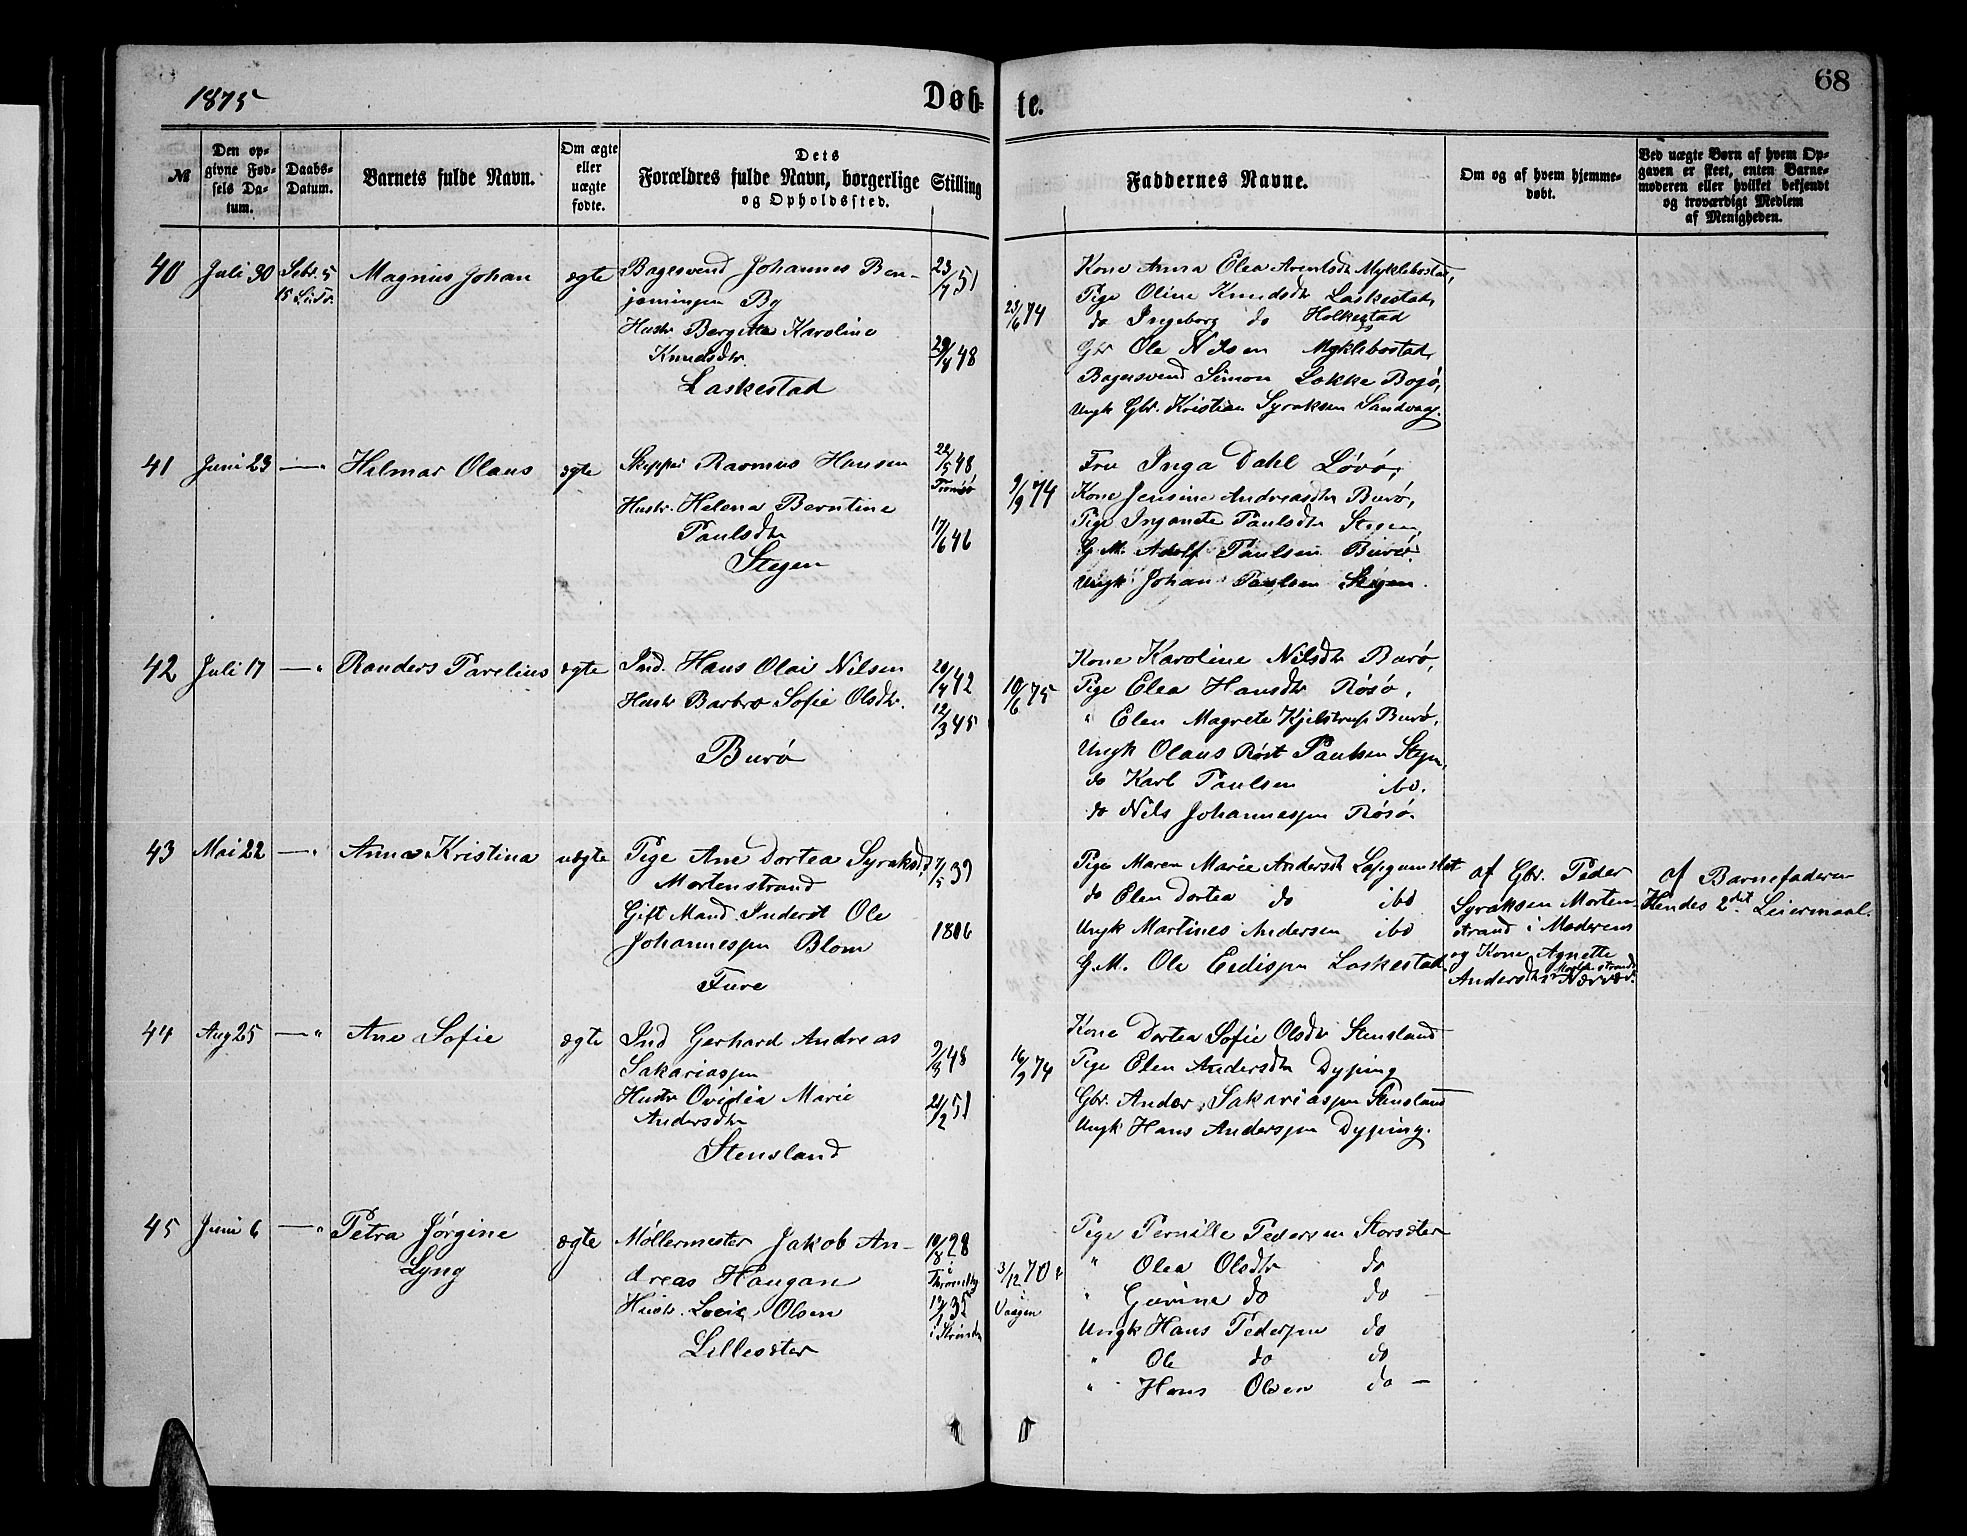 68
1875
Døb-
te.
№
Den op-
givne Fød-
sels Da-
tum.
Daabs-
Datum.
Barnets fulde Navn.
Om ægte
eller
uægte
fødte.
Dets
Forældres fulde Navn, borgerlige Stilling
og Opholdssted.
Faddernes Navne.
Om og af hvem hjemme-
døbt.
Ved uægte Børn af hvem Op-
gaven er skeet, enten Barne-
moderen eller hvilket bekjendt
og troværdigt Medlem
af Menigheden.
40 Juli 30 Sebr. 5 Magnus Johan ægte
Bagersvend Johannes Ben-
jaminsen By
Hustr Bergitte Karoline
Knudsdtr
Laskestad
23/7 51
29/4 48
23/6 74
Kone Anna Elea Arentsdtr Myklebostad,
Pige Oline Knudsdtr Laskestad,
do Ingeborg do Holkestad
Gbr Ole Nilsen Myklebostad,
Bagersvend Simon Løkke Bogø,
Ungk Gbr. Kristian Syraksen Sandvaag.
41 Juni 23 —"— Hilmar Olaus ægte
Skipper Rasmus Hansen
Hustr. Helena Berntine
Paulsdtr
Stegen
22/5 48
Tromsø
17/6 46
9/9 74
Fru Inga Dahl Løvø,
Kone Jensine Andreasdtr Burø,
Pige Inganete Paulsdtr Stegen,
G.M. Adolf Paulsen Burø.
Ungk Johan Paulsen Stegen.
42 Juli 17 —" Randers Parelius ægte
Ind. Hans Olai Nilsen
Hustr Barbro Sofie Olsdtr.
Burø
20/4 42
12/3 45
10/6 75
Kone Karoline Nilsdtr Burø,
Pige Elea Hansdtr Røsø,
" Elen Magrete Kjelstrup Burø,
Ungk Olaus Røst Paulsen Stegen,
do Karl Paulsen ibd.
do Nils Johannessen Røsø.
43 Mai 22 —" Anna Kristina uægte
Pige Ane Dortea Syraksdtr
Mortenstrand
Gift Mand Inderst Ole
Johannessen Blom
Fure
7/5 39
1816
Pige Maren Marie Andersdtr
do Elen Dortea do ibd
Ungk Martines Andersen ibd
G.M. Ole Eedissen Laskestad
af Gbr. Peder
Syraksen Morten
strand i Moderens
og Kone Agnette
Andersdtr Mortenstrands
Nærvær.
af Barnefaderen
Hendes 2det Leiermaal.
44 Aug 25 —" Ane Sofie ægte
Ind Gerhard Andreas
Sakariassen
Hustr Ovidia Marie
Andersdtr
Stensland
9/3 48
21/2 51
16/9 74
Kone Dortea Sofie Olsdtr Stensland
Pige Elen Andersdtr Dyping
Gbr. Anders Sakariassen Stensland
Ungk Hans Anderssen Dyping.
45 Juni 6 —" Petra Jørgine
Lyng
ægte
Møllermester Jakob An-
dreas Haugan
Hustr. Lovise Olsen
Lillesæter
10/8 28
i
12/1 35
i Strinden
3/12 70 i
Vaagen
Pige Pernille Pedersen Storsæter
" Olea Olsdtr do
" Gurine do do —
Ungk Hans Pedersen do
" Ole do do
" Hans Olsen do —